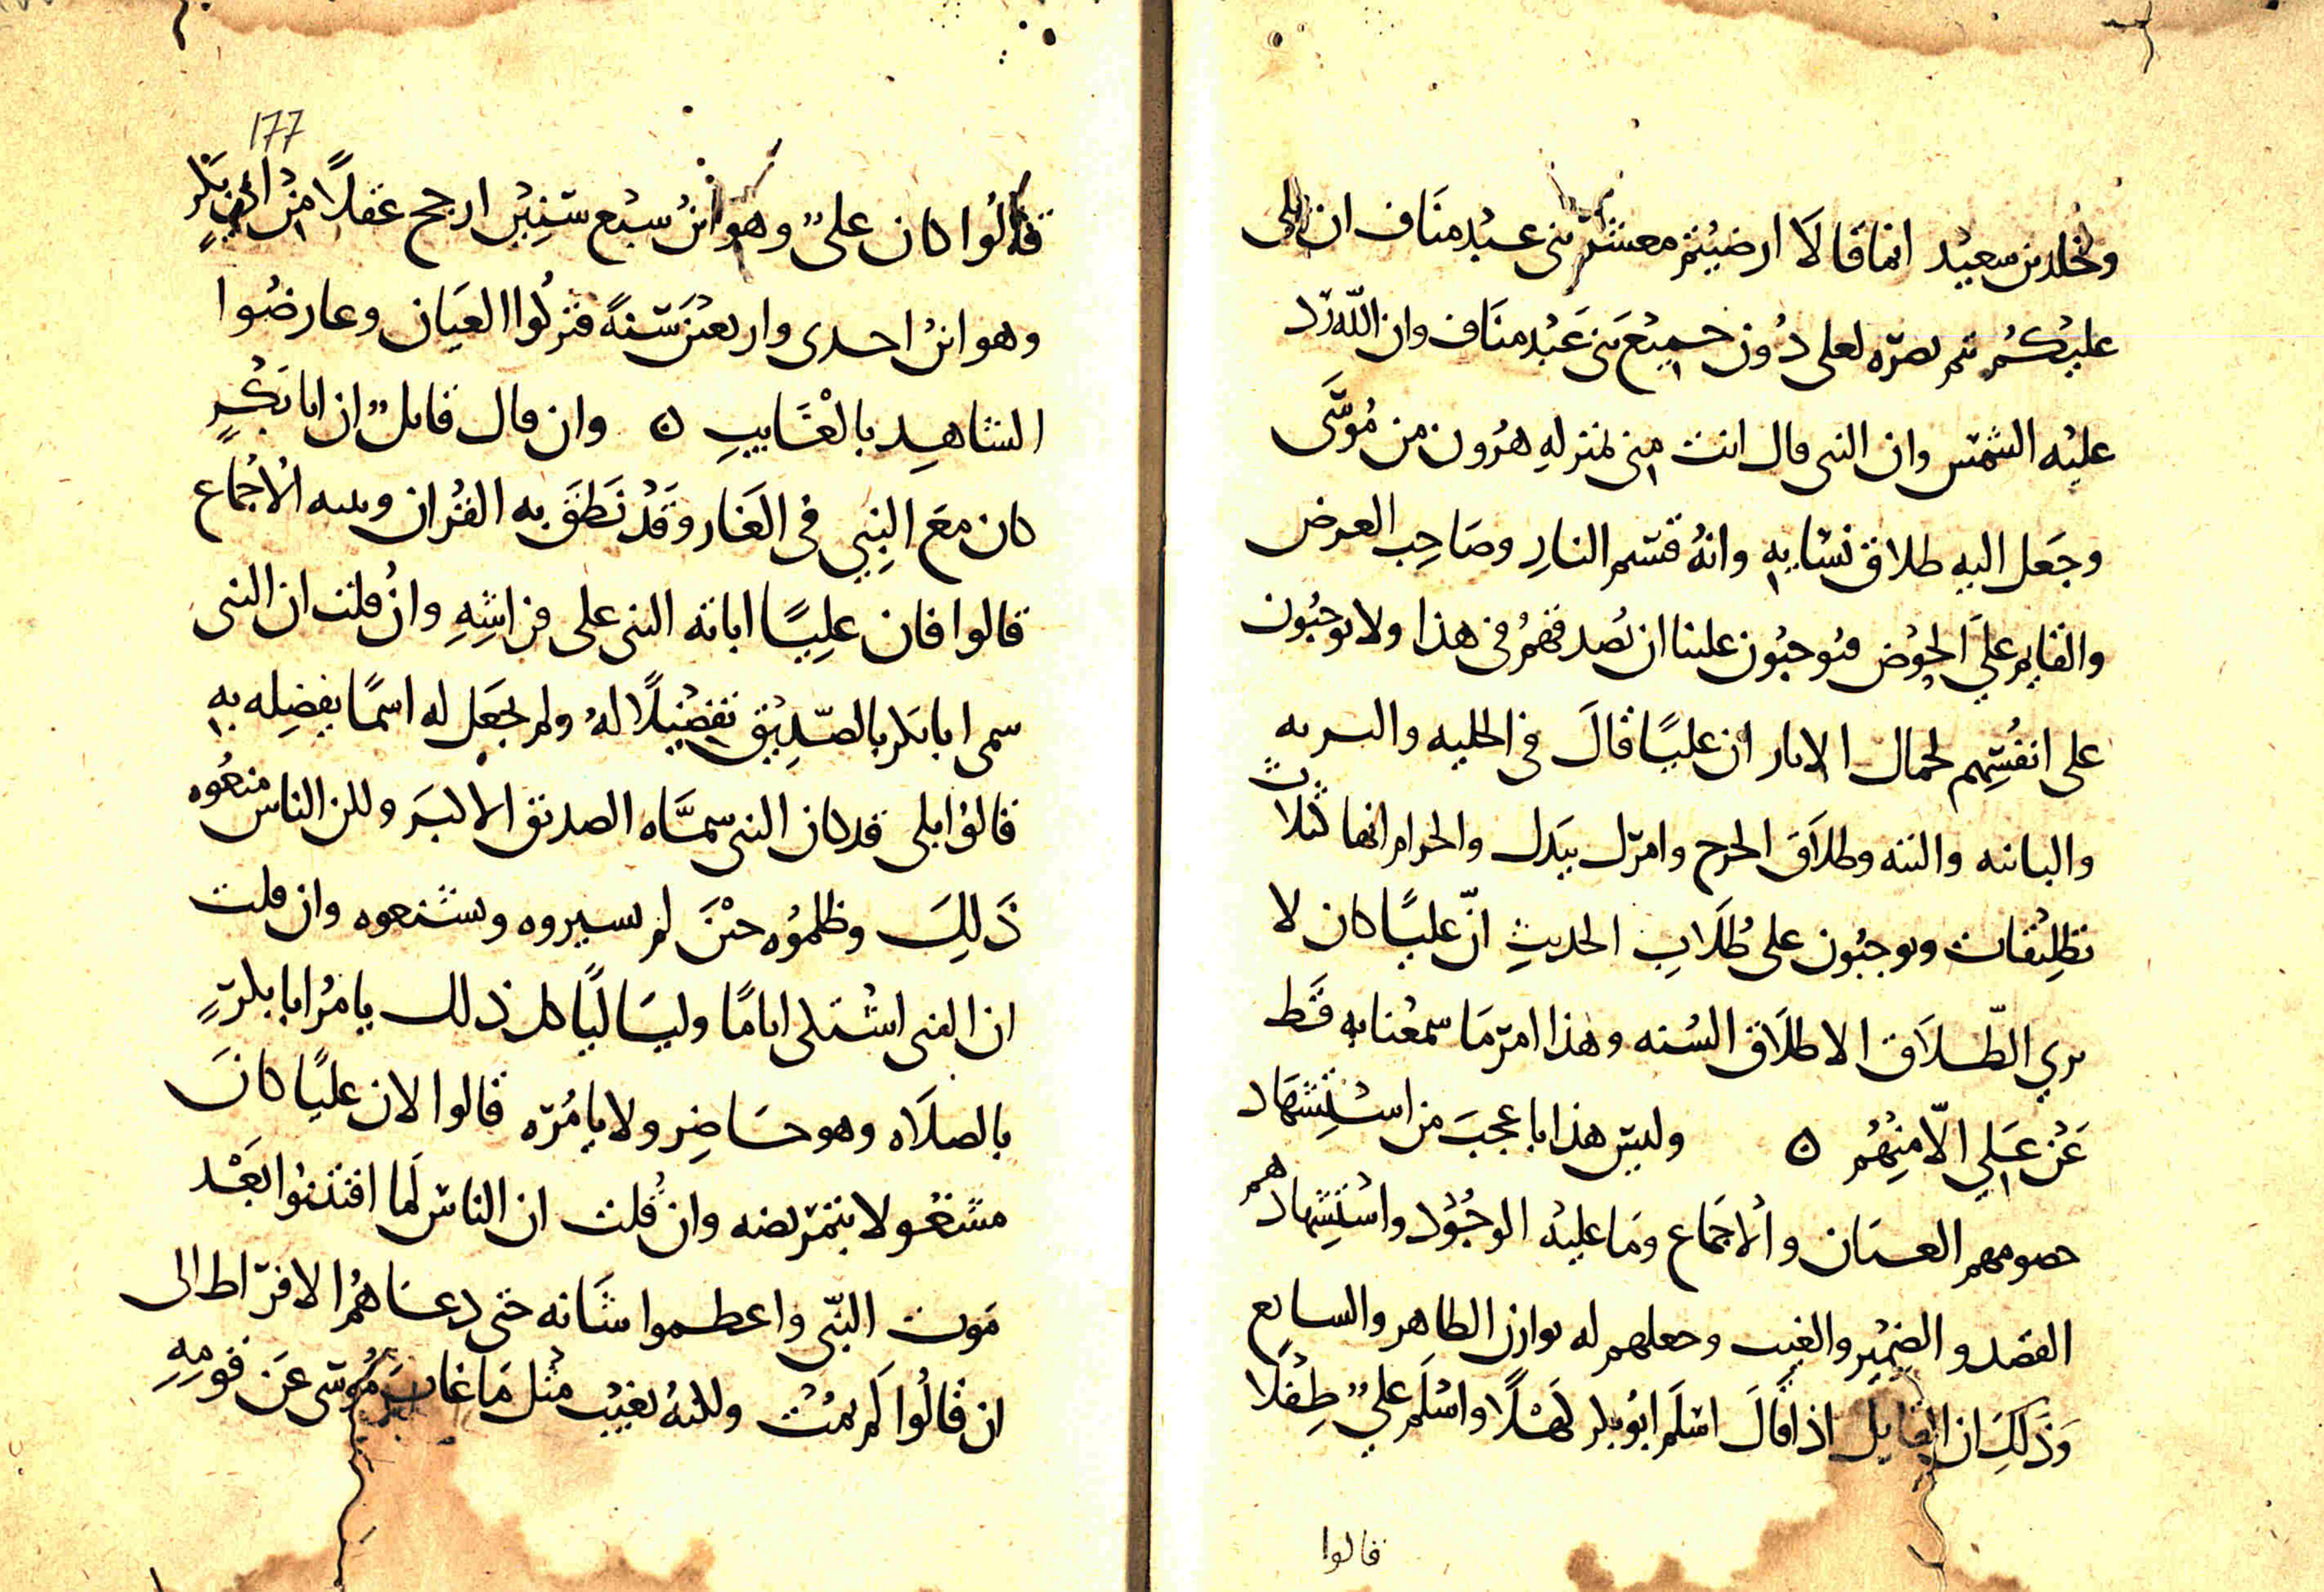 وخلد بن سعيد انما قالا ارضيتم معشر بني عبد مناف ان يلي
عليكم تيم نصره لعلى دون جميع بني عبد مناف وان الله رد
عليه الشمس وان النبي قال انت مني بمنزله هرون من موسى
وجعل اليه طلاق نسايه وانه قسم النار وصاحب العرض
والقايم على الحوض فتوجبون علينا ان نصدقهم في هذا ولا توجبون
على انفسهم لحمال الاثار ان عليا قال في الخليه والبريه
والباينه والبته وطلاق الحرج وامرك بيدك والحرام انها ثلاث
تطليقات وتوجبون على طلاب الحديث ان عليا كان لا
يري الطلاق الا طلاق السنه وهذا امر ما سمعنا به قط
عن علي الا منهم ٥ وليس هذا باعجب من استشهاد
خصومهم العيان والاجماع وما عليه الوجود واستشهادهم
القصد والضمير والغيب وجعلهم له بوازن الظاهر والسايع
وذلك ان القايل اذا قال اسلم ابو بكر كهلا واسلم علي طفلا
قالوا
177
قالوا كان علي وهو ابن سبع سنين ارجح عقلا من ابي بكر
وهو ابن احدى واربعين سنة فتركوا العيان وعارضوا
الشاهد بالغايب ٥ وان قال قايل ان ابا بكر
كان مع النبي في الغار وقد نطق به القران وبينه الاجماع
قالوا فان عليا اباته النبي على فراشه وان قلت ان النبي
سمى ابا بكر بالصديق تفضيلا له ولم يجعل له اسما يفضله به
قالوا بلى قد كان النبي سماه الصديق الاكبر ولكن الناس منعوه
ذلك وظلموه حين لم يسيروه ويشنعوه وان قلت
ان النبي اشتكى اياما وليساليا كل ذلك يامر ابا بكر
بالصلاه وهو حاضر ولا يامره قالوا لان عليا كان
مشغولا بتمريضه وان قلت ان الناس لما افتتنوا بعد
موت النبي واعظموا شانه حتى دعاهم الافراط الى
ان قالوا لم يمت ولكنه يغيب مثل ما غاب موسى عن قومه